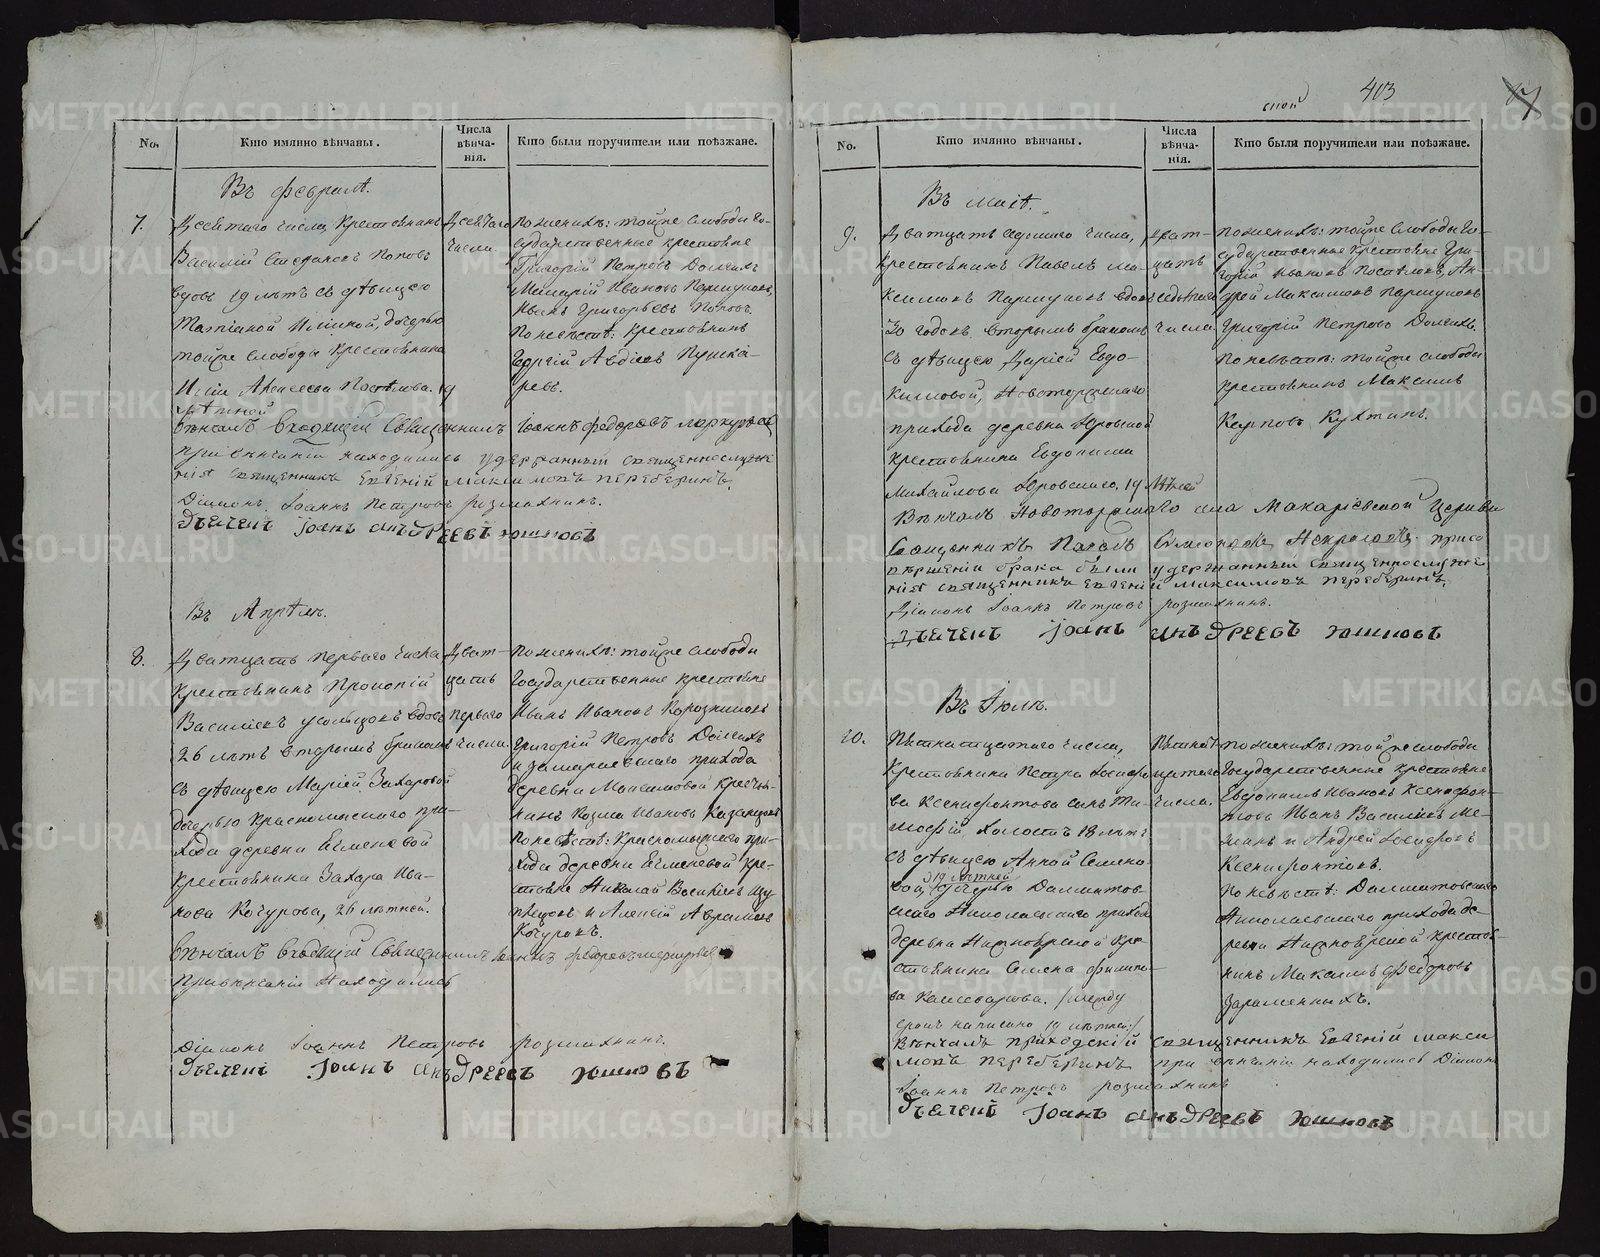 No.
Кто имянно вѣнчаны.
Числа вѣнча-
нія.
Кто были поручители или поѣзжане.
Въ Февралѣ.
7.
Десятаго числа, Крестьянинъ
Василій Стефановъ Поповъ
вдовъ 19 лѣтъ съ дѣвицею
Татіаной Иліиной, дочерью
тойже слободы крестьянина
Иліи Алексеева Постѣлова. 19
лѣтной
Десятаго
числа.
По женихѣ: тойже слободы Го-
сударственные крестьяне
Григорій Петровъ Долгихъ
Иванов Паршуков
Иванъ Григорьевъ Поповъ.
По невѣстѣ: крестьянинъ
Георгій Авдіевъ Пушка-
ревъ.
вѣнчалъ входящій Священникъ Іоаннъ Федоровъ
при вѣнчаніи находились удержанный священнослуже
нія священникъ Евгеній Максимовъ Переберинъ.
Діаконъ Іоаннъ Петровъ Размахнинъ.
Дьячекъ Іоанъ Андреевъ Юшковъ
Въ Апрѣлѣ.
8.
Дватцать перваго числа
Крестьянинъ Прокопій
Василіевъ Усольцовъ вдовъ
26 лѣтъ вторымъ бракомъ
съ дѣвицею Маріей Захаровой
дочерью Красномыскаго при-
хода деревни
крестьянина Захара Ива-
нова Кочурова, 26 лѣтней.
Дват-
цать
перваго
числа.
По женихѣ: тойже слободы
Государственные крестьяне
Иванъ Ивановъ
Григорій Петровъ Долгихъ
и замараевскаго прихода
деревни Максимовой крестья-
нинъ Козма Ивановъ Казанцовъ
По невѣстѣ: Красномыскаго при-
хода деревни кре-
стьяне Николай Василіевъ
и Алексій Аврамовъ
Кочуровъ.
вѣнчалъ входящій Священникъ Іоаннъ Федоровъ
При вѣнчаніи Находились
Діаконъ Іоаннъ Петровъ Размахнинъ.
Дьячекъ Іоанъ Андреевъ Юшковъ
403
No.
Кто имянно вѣнчаны.
Числа вѣнча-
нія.
Кто были поручители или поѣзжане.
Въ Маіѣ.
9.
Дватцать седьмаго числа,
крестьянинъ Павелъ Ма-
ксимовъ Паршуковъ вдовъ
30 годовъ вторымъ бракомъ
съ дѣвицею Даріей Евдо-
кимовой, Новоторжскаго
прихода деревни Юровской
крестьянина Евдокима
Михайлова Юровскаго. 19 лѣтней
дват-
цать
седьмаго
числа
По женихѣ: тойже слободы Го-
сударственные крестьяне Гри-
горій Ивановъ Постѣловъ, Ан-
дрей Максимовъ Паршуковъ
Григорій Петровъ Долгихъ.
По невѣстѣ: тойже слободы
крестьянинъ Максимъ
Карповъ Кухтинъ.
Вѣнчалъ Новоторжскаго села Макаріевской Церкви
Священникъ Павелъ Симоновъ Некрасовъ. при со
вѣршеніи брака были удержанный священнослуже
нія священникъ Евгеній Максимовъ Переберинъ.
Діаконъ Іоаннъ Петровъ Размахнинъ.
Дьячекъ Іоанъ Андреевъ Юшковъ
Въ Іюлѣ.
10.
Пятнатцатаго числа,
Крестьянина Петра Іосифо
ва Ксенофонтова сынъ Ти-
мофій, холостъ 18 лѣтъ
съ дѣвицею Анной Семено-
вой, 19 лѣтней дочерью Далматов-
скаго Николаевскаго прихода
деревни Нижнояркой кре-
стьянина Семена Филипо-
ва Камсварова. /между
строкъ написано 19 лѣтней:/
Пятнат
цатаго
числа.
По женихѣ: тойже слободы
Государственные крестьяне
Евдокимъ Ивановъ Ксенофон-
товъ Иванъ Василіевъ
и Андрей Іосифовъ
Ксенофонтовъ.
По невѣстѣ: Далматовскаго
Николаевскаго прихода де-
ревни Нижнояркой крестья-
нинъ Максимъ Федоровъ
Зараменныхъ.
Вѣнчалъ приходскій священникъ Евгеній Макси
мовъ Переберинъ при вѣнчаніи находились Діаконъ
Іоаннъ Петровъ Размахнинъ
Дьячекъ Іоанъ Андреевъ Юшковъ
METRIKI.GASO-URAL.RU